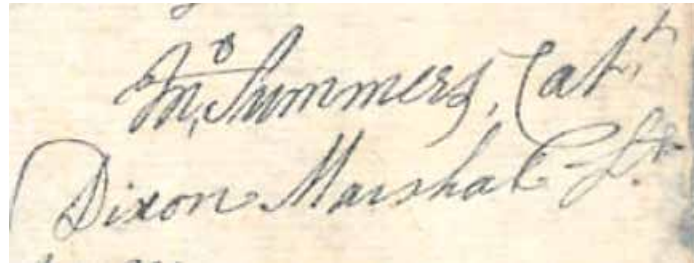 Jno. Summers, Cat.t
Dixon Marshal Lt.